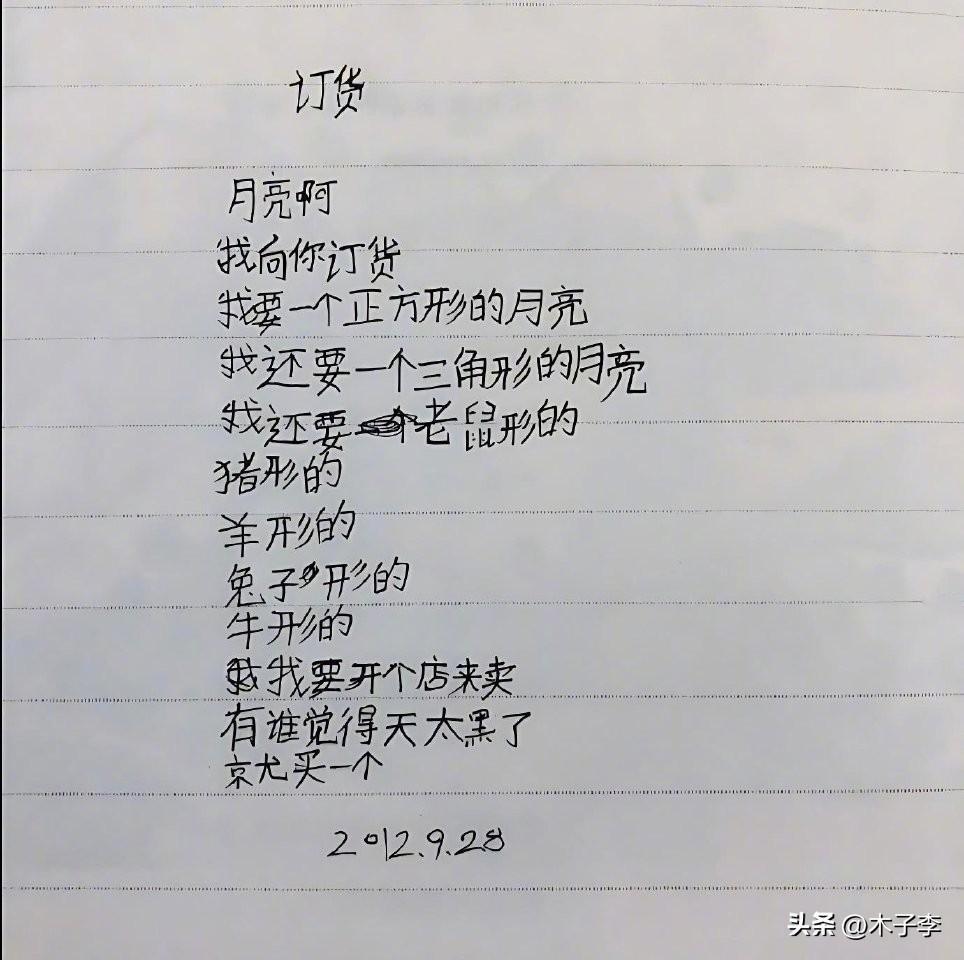 订货
月亮啊
我向你订货
我要一个正方形的月亮
我还要一个三角形的月亮
我还要老鼠形的
猪形的
羊形的
兔子形的
牛形的
我要开个店来卖
有谁觉得天太黑了
就买一个
2012.9.28
头条 @木子李